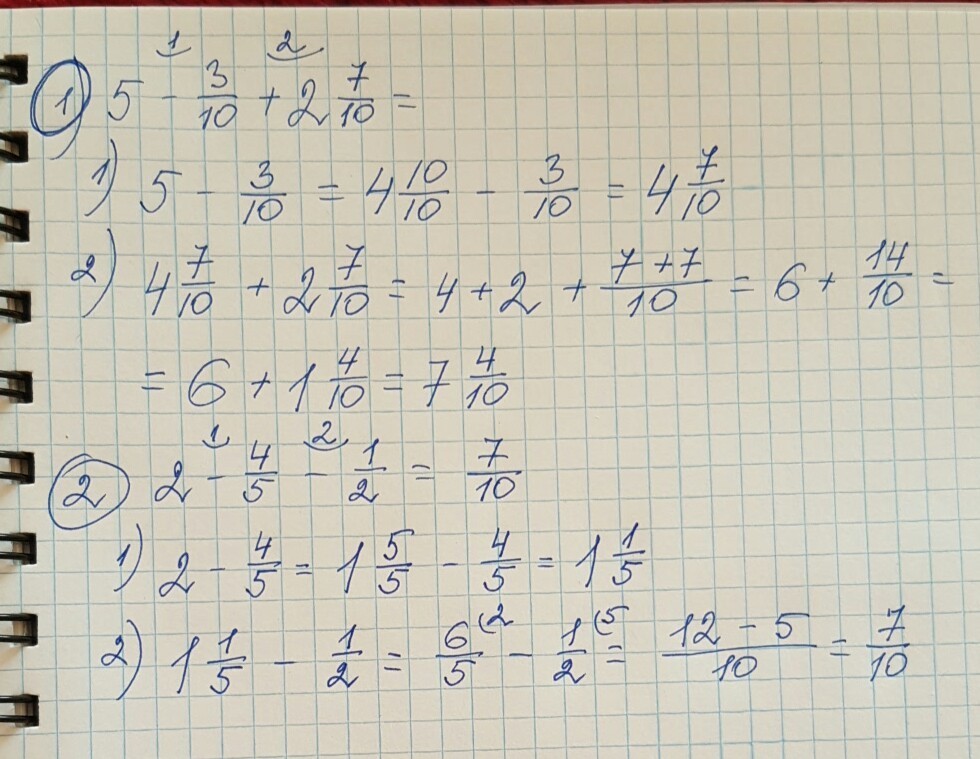 1) 5 - 3/10 + 2 7/10 =
1) 5 - 3/10 = 4 10/10 - 3/10 = 4 7/10
2) 4 7/10 + 2 7/10 = 4 + 2 + (7 + 7)/10 = 6 + 14/10 =
= 6 + 1 4/10 = 7 4/10
2 2 - 4/5 - 1/2 = 7/10
1) 2 - 4/5 = 1 5/5 - 4/5 = 1 1/5
2) 1 1/5 - 1/2 = 6/5 (2 - 1/2 (5 = (12 - 5)/10 = 7/10